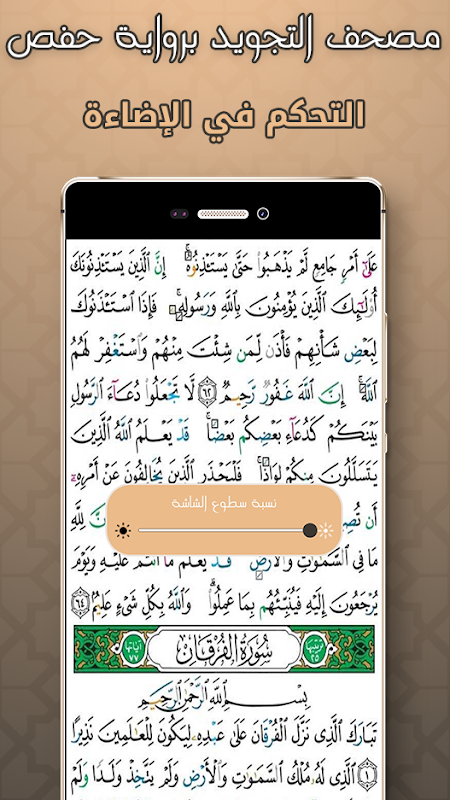 مصحف التجويد برواية حفص
التحكم في الإضاءة
عَلَىٰٓ أَمۡرٖ جَامِعٖ لَّمۡ يَذۡهَبُواْ حَتَّىٰ يَسۡتَـٔۡذِنُوهُۚ إِنَّ ٱلَّذِينَ يَسۡتَـٔۡذِنُونَكَ
أُوْلَٰٓئِكَ ٱلَّذِينَ يُؤۡمِنُونَ بِٱللَّهِ وَرَسُولِهِۦۚ فَإِذَا ٱسۡتَـٔۡذَنُوكَ
لِبَعۡضِ شَأۡنِهِمۡ فَأۡذَن لِّمَن شِئۡتَ مِنۡهُمۡ وَٱسۡتَغۡفِرۡ لَهُمُ
ٱللَّهَۚ إِنَّ ٱللَّهَ غَفُورٞ رَّحِيمٞ ٦٢ لَّا تَجۡعَلُواْ دُعَآءَ ٱلرَّسُولِ
بَيۡنَكُمۡ كَدُعَآءِ بَعۡضِكُم بَعۡضٗاۚ قَدۡ يَعۡلَمُ ٱللَّهُ ٱلَّذِينَ
يَتَسَلَّلُونَ مِنكُمۡ لِوَاذٗاۚ فَلۡيَحۡذَرِ ٱلَّذِينَ يُخَالِفُونَ عَنۡ أَمۡرِهِۦٓ
أَن
نَّ لِلَّهِ
نسبة سطوع الشاشة
مَا فِي ٱلسَّمَٰوَٰتِ وَٱلۡأَرۡضِۖ قَدۡ يَعۡلَمُ مَآ أَنتُمۡ عَلَيۡهِ وَيَوۡمَ
يُرۡجَعُونَ إِلَيۡهِ فَيُنَبِّئُهُم بِمَا عَمِلُواْۗ وَٱللَّهُ بِكُلِّ شَيۡءٍ عَلِيمُۢ ٦٤
ترتيبها ٢٥ سُورَةُ الفُرْقَانِ آياتها ٧٧
بِسۡمِ ٱللَّهِ ٱلرَّحۡمَٰنِ ٱلرَّحِيمِ
تَبَارَكَ ٱلَّذِي نَزَّلَ ٱلۡفُرۡقَانَ عَلَىٰ عَبۡدِهِۦ لِيَكُونَ لِلۡعَٰلَمِينَ نَذِيرًا
١ ٱلَّذِي لَهُۥ مُلۡكُ ٱلسَّمَٰوَٰتِ وَٱلۡأَرۡضِ وَلَمۡ يَتَّخِذۡ وَلَدٗا وَلَمۡ